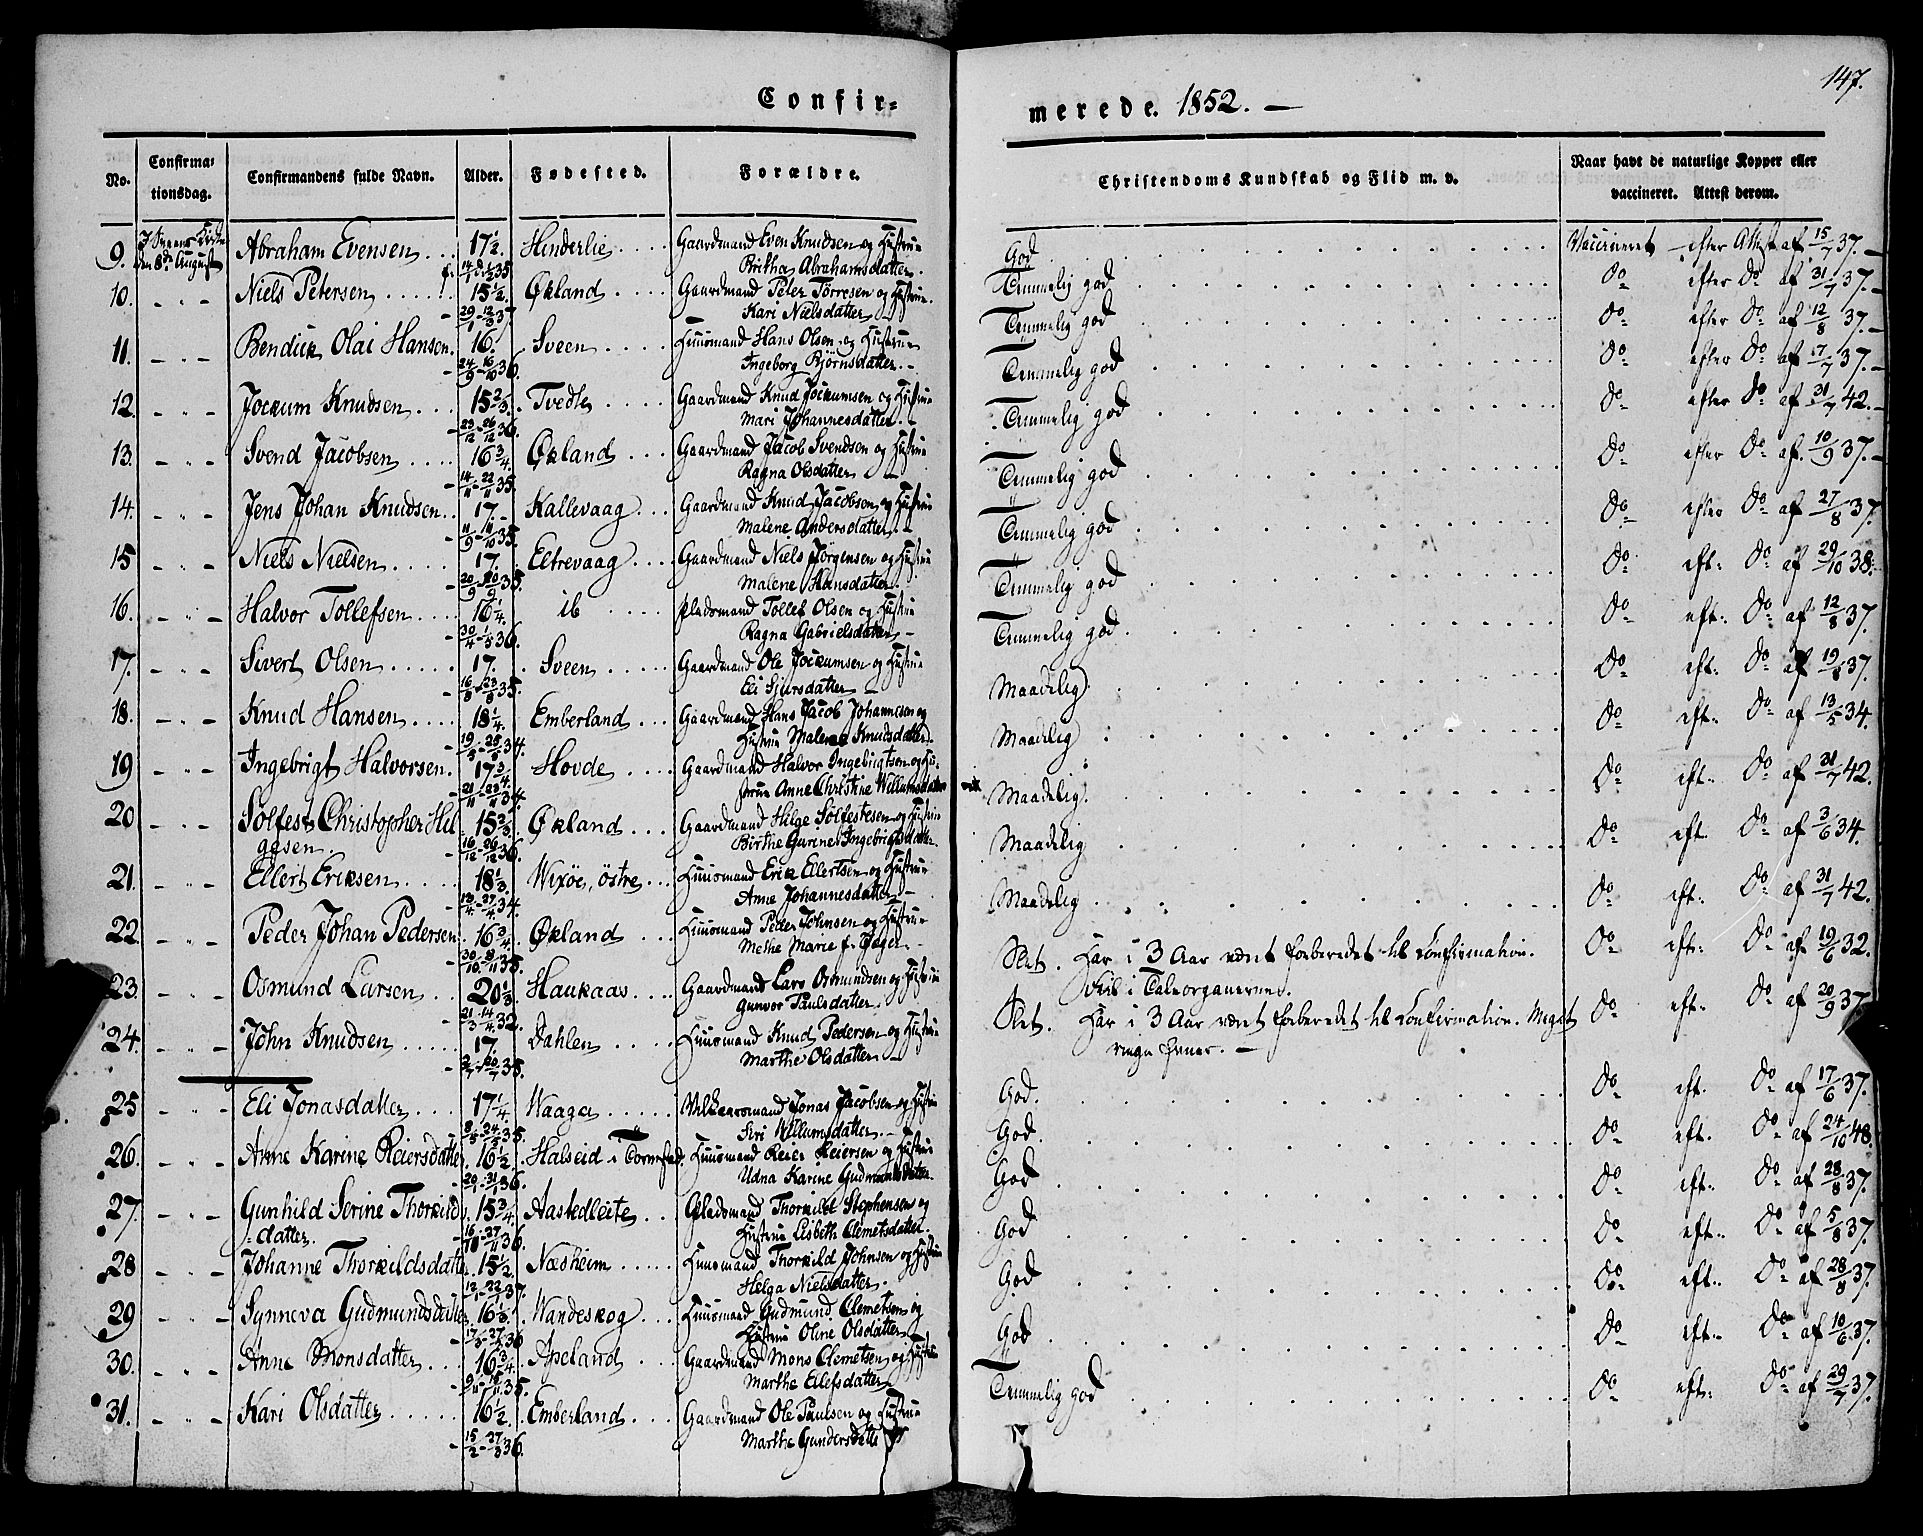 147.
Confir-
merede. 1852. —
No.
Confirma-
tionsdag.
Confirmandens fulde Navn.
Alder.
Fødested.
Forældre.
Christendoms Kundskab og Flid m. v.
Naar havt de naturlige Kopper eller
vaccineret. Attest derom.
9. I Sveens Kirke Abraham Evensen 17 1/2. Hinderlie Gaardmand Even Knudsen og Hustrue
den 8de August Britha Abrahamsdatter.
God Vaccineret efter Attest af 15/7 37.
10. Niels Petersen 15 1/2. Økland Gaardmand Peter Törresen og Hustrue
29/1 - 12/3 37 Kari Nielsdatter
Temmelig god Do efter Do af 31/7 37.
11. Bendick Olai Hansen. 16. Sveen Huusmand Hans Olsen og Hustrue
24/9 - 16/10 36. Ingeborg Björnsdatter.
Temmelig god Do efter Do af 12/8 37.
12. Jockum Knudsen 15 2/3. Tvedte Gaardmand Knud Jockumsen og Hustrue
23/12 - 26/12 36. Mari Johannesdatter.
Temmelig god Do efter Do af 17/7 37.
13. Svend Jacobsen 16 3/4. Økland Gaardmand Jacob Svendsen og Hustrue
14/11 - 22/11 35. Ragna Olsdatter
Temmelig god Do efter Do af 31/7 42.
14. Jens Johan Knudsen 17. Kallevaag Gaardmand Knud Jacobsen og Hustrue
11/9 - 11/10 35. Malene Andersdatter
Temmelig god Do efter Do af 10/9 37.
15 Niels Nielsen 17. Eltrevaag Gaardmand Niels Jörgensen og Hustrue
20/9 - 20/9 35. Malene Hansdatter
Temmelig god Do efter Do af 27/8 37.
16. Halvor Tollefsen 16 1/4. ib Pladsmand Tollef Olsen og Hustrue
30/4 - 1/5 36. Ragna Gabrielsdatter
Temmelig god Do eft: Do af 29/10 38.
17. Sivert Olsen 17. Sveen Gaardmand Ole Jockumsen og Hustrue
16/8 - 23/8 35. Eli Sjursdatter
Temmelig god Do eft: Do af 12/8 37.
18. Knud Hansen 18 1/4. Emberland Gaardmand Hans Jacob Johannesen og
19/5 - 25/5 34. Hustrue Malene Knudsdatter
Maadelig Do eft: Do af 19/8 37.
19 Ingebrigt Halvorsen. 17 3/4. Hovde Gaardmand Halvor Ingebrigtsen og Hu-
21/11 - 23/11 34. strue Anne Christine Willumsdatter
Maadelig Do eft: Do af 13/5 34.
20 Solfest Christopher Hel- 15 2/3. Økland Gaardmand Helge Solfestesen og Hustrue
gesen. 16/12 - 26/12 36. Birthe Gurine Ingebrigtsdatter
Maadelig Do eft: Do af 31/7 42.
21. Ellert Eriksen 18 1/3. Wixöe, östre Huusmand Erik Ellertsen og Hustrue
13/4 - 27/4 34. Anne Johannesdatter
Maadelig Do eft. Do af 3/6 34.
22. Peder Johan Pedersen 16 3/4. Økland Huusmand Peder Johnsen og Hustrue
30/10 - 8/11 35. Methe Marie f.
Maadelig Do eft: Do af 31/7 42.
23. Osmund Larsen 20 1/3. Haukaas Gaardmand Lars Osmundsen og Hustrue
21/3 - 14/4 32. Gunvor Paulsdatter.
Slet. Har i 3 Aar været forberedet til Confirmation.
Feil i Taleorganerne. Do eft: Do af 19/6 32.
24. John Knudsen 17. Dahlen Huusmand Knud Pedersen og Hustrue
2/7 - 20/7 35. Marthe Olsdatter
Slet. Har i 3 Aar været forberedet til Confirmation. Meget
ringe Evner. — Do eft: Do af 20/9 37.
25 Eli Jonasdatter 17 1/4. Waage Vilkaarsmand Jonas Jacobsen og Hustrue
8/5 - 24/5 35. Siri Willumsdatter.
God. Do eft: Do af 17/6 37.
26. Anne Karine Reiersdatter 16 1/2. Halseid i Huusmand Reier Reiersen og Hustrue
20/1 - 31/1 36. Udna Karine Gudmundsdatter
God. Do eft. Do af 24/10 48.
27. Gunhild Serine Thorkild- 15 3/4. Aastedleite Pladsmand Thorkild Stephensen og
datter. 16/11 - 27/11 36. Hustrue Lisbeth Clemetsdatter.
God Do eft. Do af 28/8 37.
28 Johanne Thorkildsdatter 15 1/2. Næsheim Huusmand Thorkild Johnsen og Hustrue
12/1 - 22/1 37. Helga Nielsdatter.
God Do eft: Do af 5/8 37.
29 Synneva Gudmundsdatter 16 1/3. Wandeskog Huusmand Gudmund Clemetsen og
17/3 - 27/3 36 Hustrue Oline Olsdatter
God Do eft: Do af 28/8 37.
30. Anne Monsdatter 16 3/4. Apeland Gaardmand Mons Clemetsen og Hustrue
9/11 - 15/11 35. Marthe Eilefsdatter
God Do eft: Do af 10/6 37.
31. Kari Olsdatter 16 1/2. Emberland Gaardmand Ole Paulsen og Hustrue
15/2 - 27/3 36. Marthe Gundersdatter
Temmelig god Do eft: Do af 29/7 37.